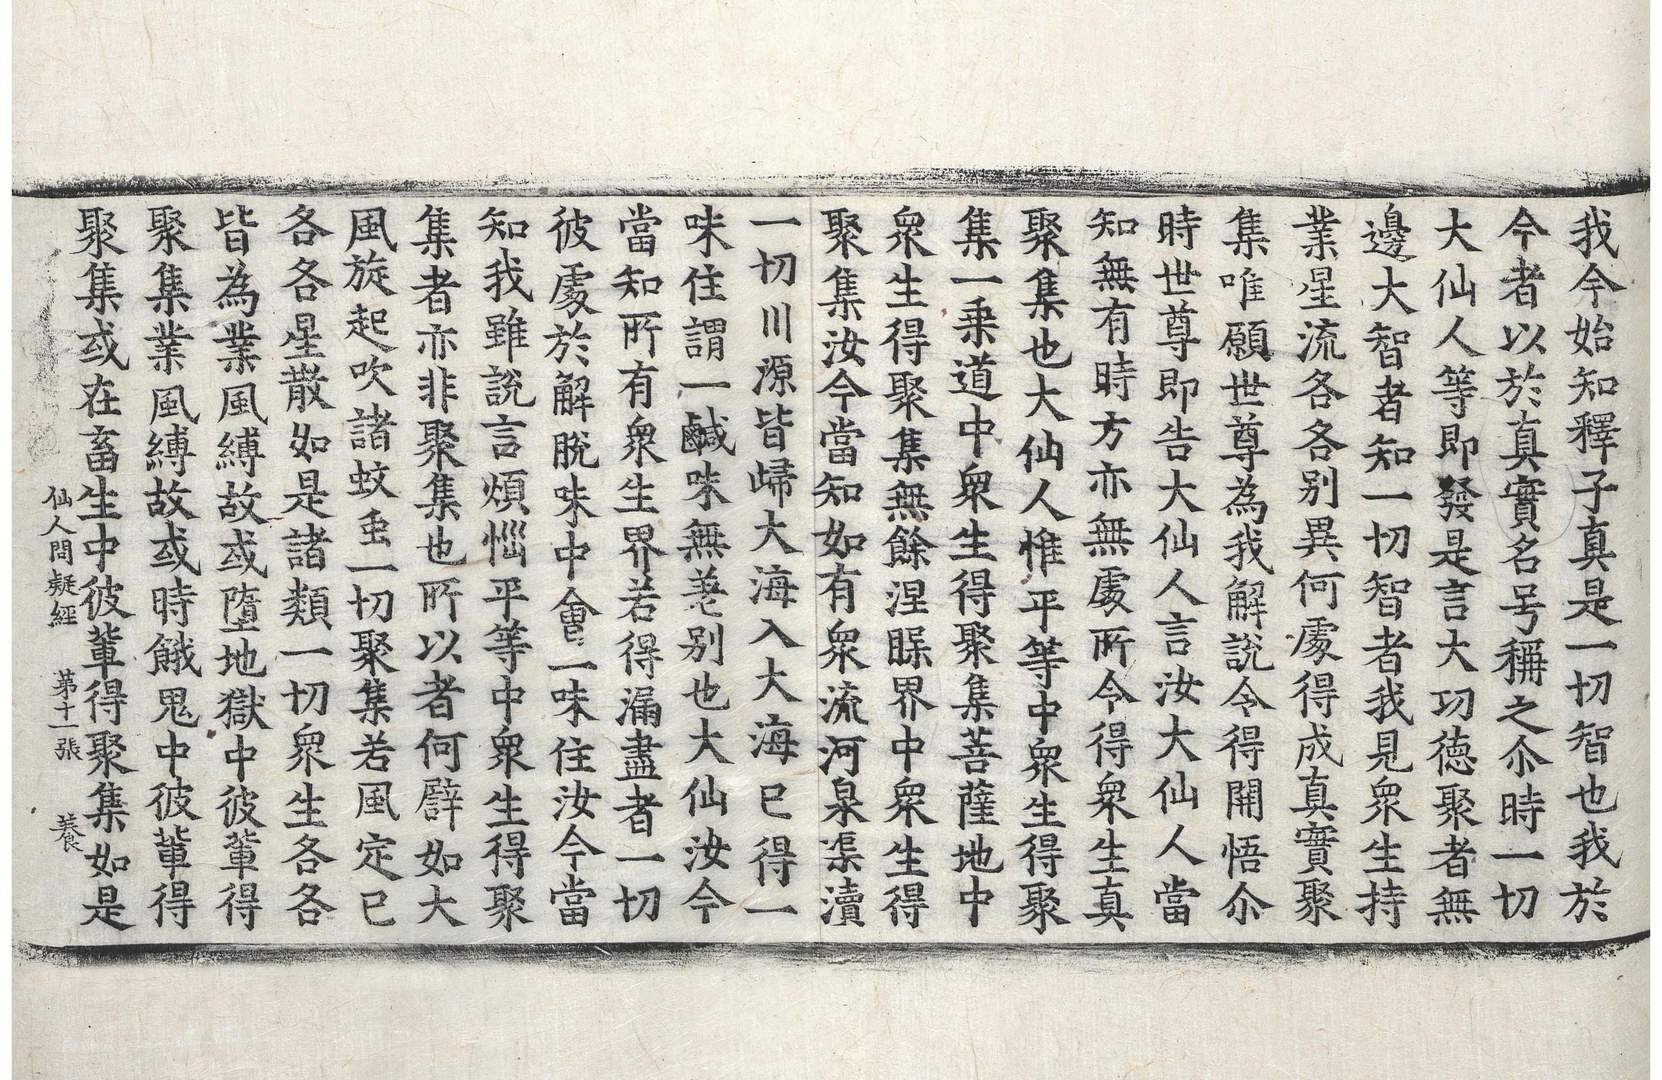 我今始知釋子真是一切智也我於
今者以於真實名号稱之尒時一切
大仙人等即發是言大功德聚者無
邊大智者知一切智者我見衆生持
業星流各各別異何處得成真實聚
集唯願世尊為我解說令得開悟尒
時世尊即告大仙人言汝大仙人當
知無有時方亦無處所令得衆生真
聚集也大仙人惟平等中衆生得聚
集一乗道中衆生得聚集菩薩地中
衆生得聚集無餘涅槃界中衆生得
聚集汝今當知如有衆流河泉渠瀆
一切川源皆歸大海入大海已得一
味住謂一鹹味無差別也大仙汝今
當知所有衆生界若得漏盡者一切
彼處於解脫味中會一味住汝今當
知我雖說言煩惱平等中衆生得聚
集者亦非聚集也所以者何譬如大
風旋起吹諸蚊䖝一切聚集若風定已
各各星散如是諸類一切衆生各各
皆為業風縛故或墮地獄中彼輩得
聚集業風縛故或時餓鬼中彼輩得
聚集或在畜生中彼輩得聚集如是
仙人問疑經 第十一張 養